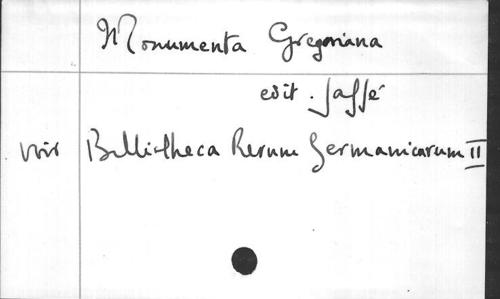 Monumenta Gregoriana
edit. Jaffé
voir Bibliotheca Rerum Germanicarum II